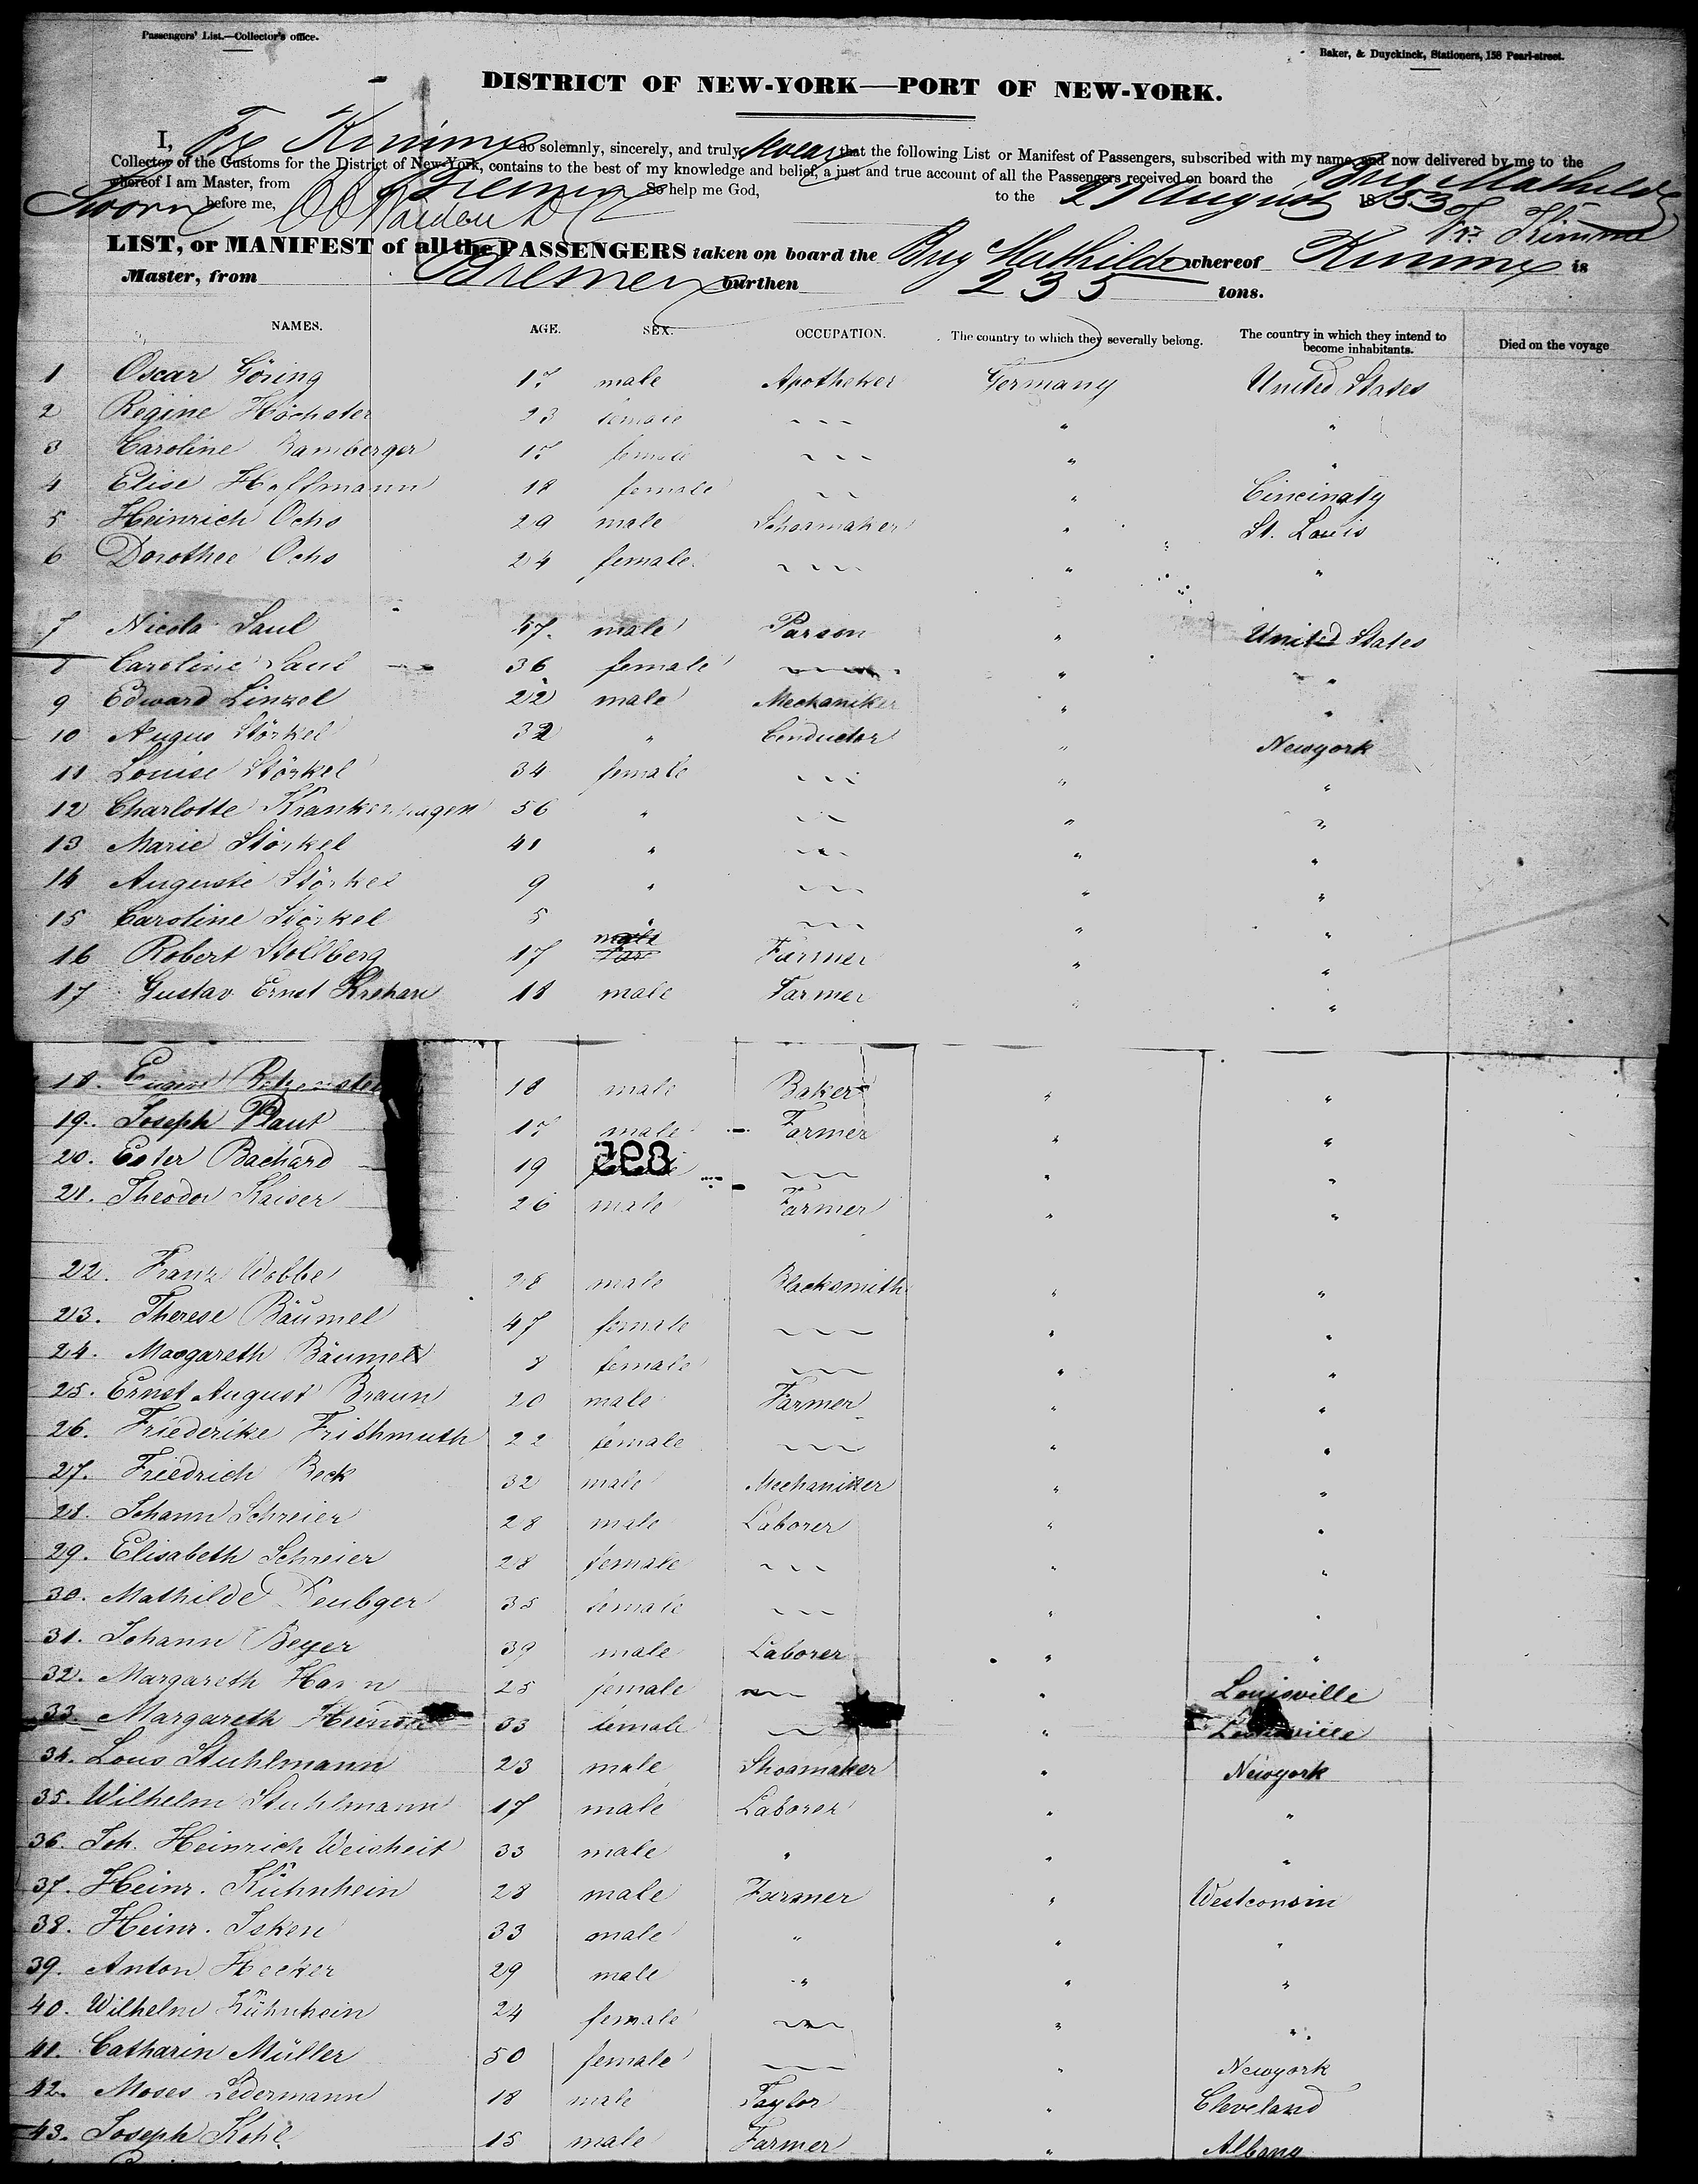 Passengers' List.—Collector's office.
Baker, & Duyckinck, Stationers, 158 Pearl-street.
DISTRICT OF NEW-YORK—PORT OF NEW-YORK.
I, Fr. Kimme do solemnly, sincerely, and truly swear that the following List or Manifest of Passengers, subscribed with my name, and now delivered by me to the
Collector of the Customs for the District of New-York, contains to the best of my knowledge and belief, a just and true account of all the Passengers received on board the Brig Mathilde
whereof I am Master, from Bremen So help me God,
Sworn before me, to the 27 August 1853
Fr. Kimme
LIST, or MANIFEST of all the PASSENGERS taken on board the Brig Mathilde whereof Kimme is
Master, from Bremen burthen 235 tons.
NAMES. AGE. SEX. OCCUPATION. The country to which they severally belong. The country in which they intend to become inhabitants. Died on the voyage
1 Oscar Göring 17 male Apotheker Germany United States
2 Regine Höchster 23 female - - - " "
3 Caroline Bamberger 17 female - - - " "
4 Elise Hoffmann 18 female - - " Cincinaty
5 Heinrich Ochs 29 male Schoamaker " St. Louis
6 Dorothee Ochs 24 female - - - " "
7 Nicola Saul 47. male Parson " United States
8 Caroline Saul 36 female " "
9 Edward Linzel 22 male Mechaniker " "
10 Augus Störkel 32 " Conductor " Newyork
11 Louise Störkel 34 female - - - " "
12 Charlotte Krankenhagen 56 " - - " "
13 Marie Störkel 41 " - - - " "
14 Auguste Störkel 9 " - - - " "
15 Caroline Störkel 5 " - - - " "
16 Robert Stollberg 17 male Farmer " "
17 Gustav Ernst 18 male Farmer " "
18. 18 male Baker " "
19. Joseph Plaut 17 male Farmer " "
20. Ester Bachard 19 - - - " "
598
21. Theodor Kaiser 26 male Farmer " "
22. Franz Wobbe 28 male Blacksmith " "
23. Therese Bäumel 47 female - - - " "
24. Maogareth Bäumel 8 female - - - " "
25. Ernst August Braun 20 male Farmer " "
26. Friederike Frishmuth 22 female - - - " "
27. Friedrich Beck 32 male Mechaniker " "
28. Johann Schreier 28 male Laborer " "
29. Elisabeth Schreier 28 female - - - " "
30. Mathilde 35 female - - - " "
31. Johann Beyer 39 male Laborer " "
32. Margareth 25 female - - - " Louisville
33. Margareth 33 female - - " Louisville
34. Lous Stuhlmann 23 male Shoamaker " Newyork
35. Wilhelm Stuhlmann 17 male Laborer " "
36. Joh. Heinrich Weisheit 33 male " " "
37. Heinr. Kühnhein 28 male Farmer " Westconsin
38. Heinr. Isken 33 male " " "
39. Anton Hecker 29 male " " "
40. Wilhelm Kühnhein 24 female - - - " "
41. Catharin Müller 50 female - - - " Newyork
42. Moses Ledermann 18 male Taylor " Cleveland
43. Joseph Kohl 15 male Farmer " Albany